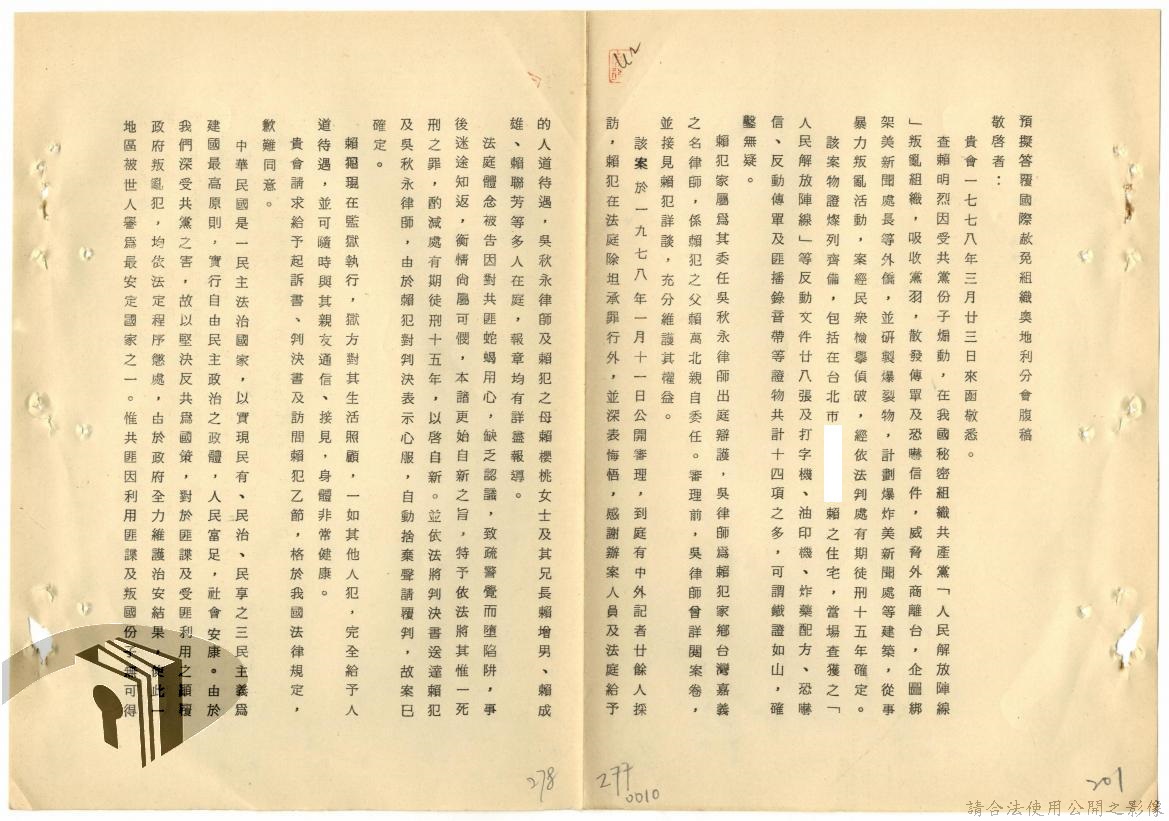 預擬答覆國際赦免組織奧地利分會腹稿
敬啓者：
貴會一七七八年三月廿三日來函敬悉。
查賴明烈因受共黨份子煽動，在我國秘密組織共產黨「人民解放陣線
」叛亂組織，吸收黨羽，散發傳單及恐嚇信件，威脅外商離台，企圖綁
架美新聞處長等外僑，並研製爆裂物，計劃爆炸美新聞處等建築，從事
暴力叛亂活動，案經民衆檢擧偵破，經依法判處有期徒刑十五年確定。
該案物證燦列齊備，包括在台北市　　　　賴之住宅，當場查獲之「
人民解放陣線」等反動文件廿八張及打字機、油印機、炸藥配方、恐嚇
信、反動傳單及匪播錄音帶等證物共計十四項之多，可謂鐵證如山，確
鑿無疑。
賴犯家屬爲其委任吳秋永律師出庭辯護，吳律師爲賴犯家鄉台灣嘉義
之名律師，係賴犯之父賴萬北親自委任。審理前，吳律師曾詳閱案卷，
並接見賴犯詳談，充分維護其權益。
該案於一九七八年一月十一日公開審理，到庭有中外記者廿餘人採
訪，賴犯在法庭除坦承罪行外，並深表悔悟，感謝辦案人員及法庭給予
的人道待遇，吳秋永律師及賴犯之母賴櫻桃女士及其兄長賴增男、賴成
雄、賴聯芳等多人在庭，報章均有詳盡報導。
法庭體念被告因對共匪蛇蝎用心，缺乏認識，致疏警覺而墮陷阱，事
後迷途知返，衡情尙屬可憫，本諸更始自新之旨，特予依法將其惟一死
刑之罪，酌減處有期徒刑十五年，以啓自新。並依法將判決書送達賴犯
及吳秋永律師，由於賴犯對判決表示心服，自動捨棄聲請覆判，故案已
確定。
賴犯現在監獄執行，獄方對其生活照顧，一如其他人犯，完全給予人
道待遇，並可隨時與其親友通信、接見，身體非常健康。
貴會請求給予起訴書、判決書及訪問賴犯乙節，格於我國法律規定，
歉難同意。
中華民國是一民主法治國家，以實現民有、民治、民享之三民主義爲
建國最高原則，實行自由民主政治之政體，人民富足，社會安康。由於
我們深受共黨之害，故以堅決反共爲國策，對於匪諜及受匪利用之顚覆
政府叛亂犯，均依法定程序懲處，由於政府全力維護治安結果，使此一
地區被世人譽爲最安定國家之一。惟共匪因利用匪諜及叛國份子無可得
201
277
0010
278
請合法使用公開之影像